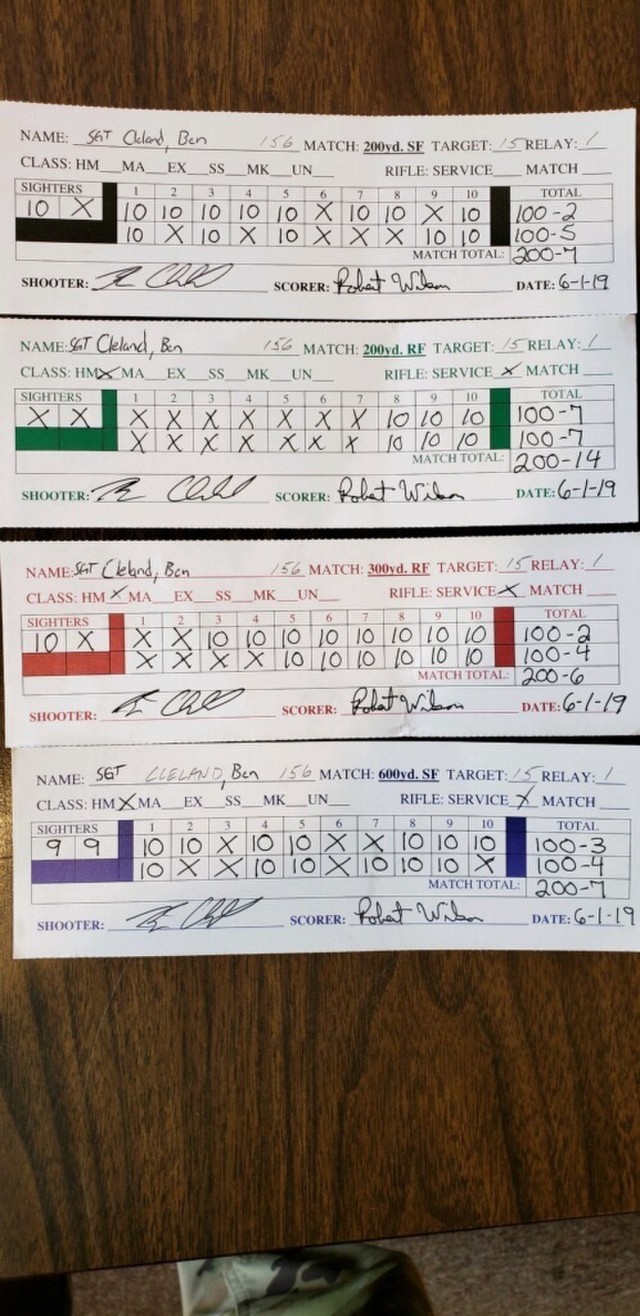 NAME: SGT Cleland, Ben 156 MATCH: 200yd. SF TARGET: 15 RELAY: 1
CLASS: HM___MA___EX___SS___MK___UN___ RIFLE: SERVICE___ MATCH ___
SIGHTERS 1 2 3 4 5 6 7 8 9 10 TOTAL
10 X 10 10 10 10 10 X 10 10 X 10 100-2
10 X 10 X 10 X X X 10 10 100-5
MATCH TOTAL: 200-7
SHOOTER: SCORER: Robert Wilson DATE: 6-1-19
NAME: SGT Cleland, Ben 156 MATCH: 200yd. RF TARGET: 15 RELAY: 1
CLASS: HM X MA___EX___SS___MK___UN___ RIFLE: SERVICE X MATCH ___
SIGHTERS 1 2 3 4 5 6 7 8 9 10 TOTAL
X X X X X X X X X 10 10 10 100-7
X X X X X X X 10 10 10 100-7
MATCH TOTAL: 200-14
SHOOTER: SCORER: Robert Wilson DATE: 6-1-19
NAME: SGT Cleland, Ben 156 MATCH: 300yd. RF TARGET: 15 RELAY: 1
CLASS: HM X MA___EX___SS___MK___UN___ RIFLE: SERVICE X MATCH ___
SIGHTERS 1 2 3 4 5 6 7 8 9 10 TOTAL
10 X X X 10 10 10 10 10 10 10 10 100-2
X X X X 10 10 10 10 10 10 100-4
MATCH TOTAL: 200-6
SHOOTER: SCORER: Robert Wilson DATE: 6-1-19
NAME: SGT CLELAND, Ben 156 MATCH: 600yd. SF TARGET: 15 RELAY: 1
CLASS: HM X MA___EX___SS___MK___UN___ RIFLE: SERVICE X MATCH ___
SIGHTERS 1 2 3 4 5 6 7 8 9 10 TOTAL
9 9 10 10 X 10 10 X X 10 10 10 100-3
10 X X 10 10 X 10 10 10 X 100-4
MATCH TOTAL: 200-7
SHOOTER: SCORER: Robert Wilson DATE: 6-1-19